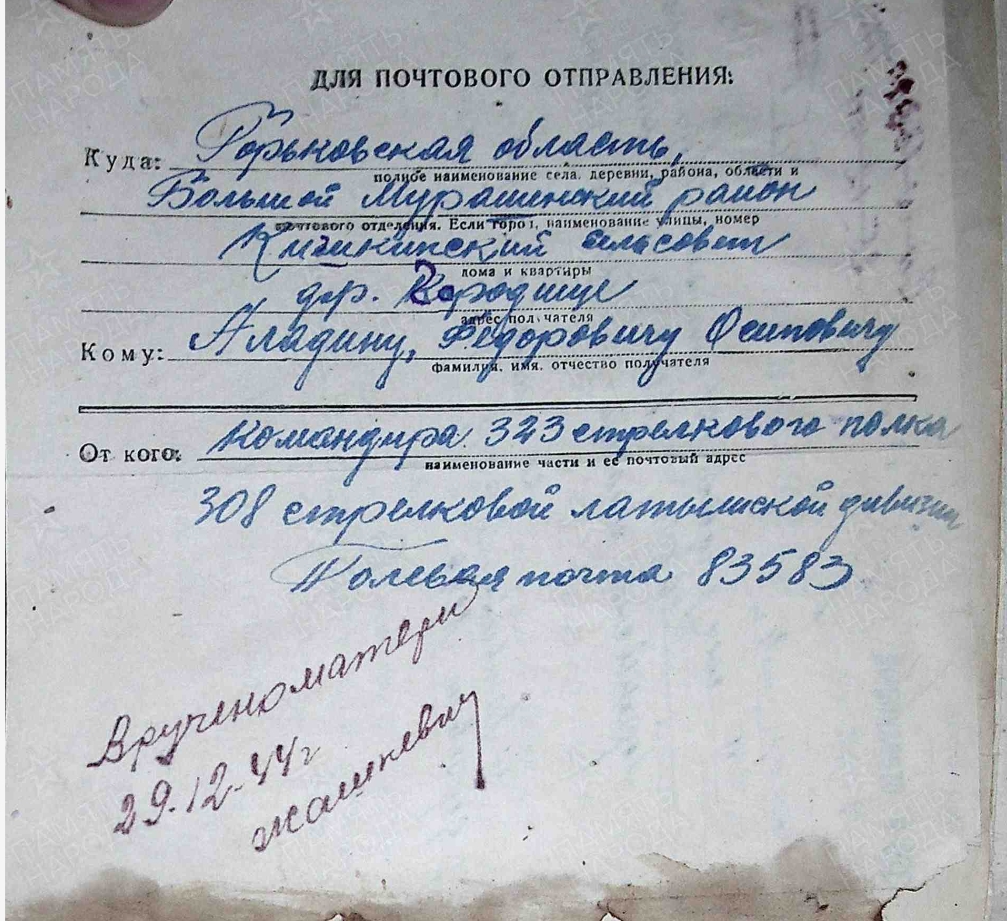 ДЛЯ ПОЧТОВОГО ОТПРАВЛЕНИЯ:
Куда: Горьковская область,
полное наименование села, деревни, района, области и
Большой Мурашкинский район
почтового отделения. Если город, наименование улицы, номер
Кишкинский сельсовет
дома и квартиры
дер. Городище
адрес получателя
Кому: Аладину, Фёдоровичу Осиповичу
фамилия, имя, отчество получателя
От кого: Командира 323 стрелкового полка
наименование части и её почтовый адрес
308 стрелковой латышской дивизии
Полевая почта 83583
Вручено матери
29.12-44 г
ПАМЯТЬ НАРОДА